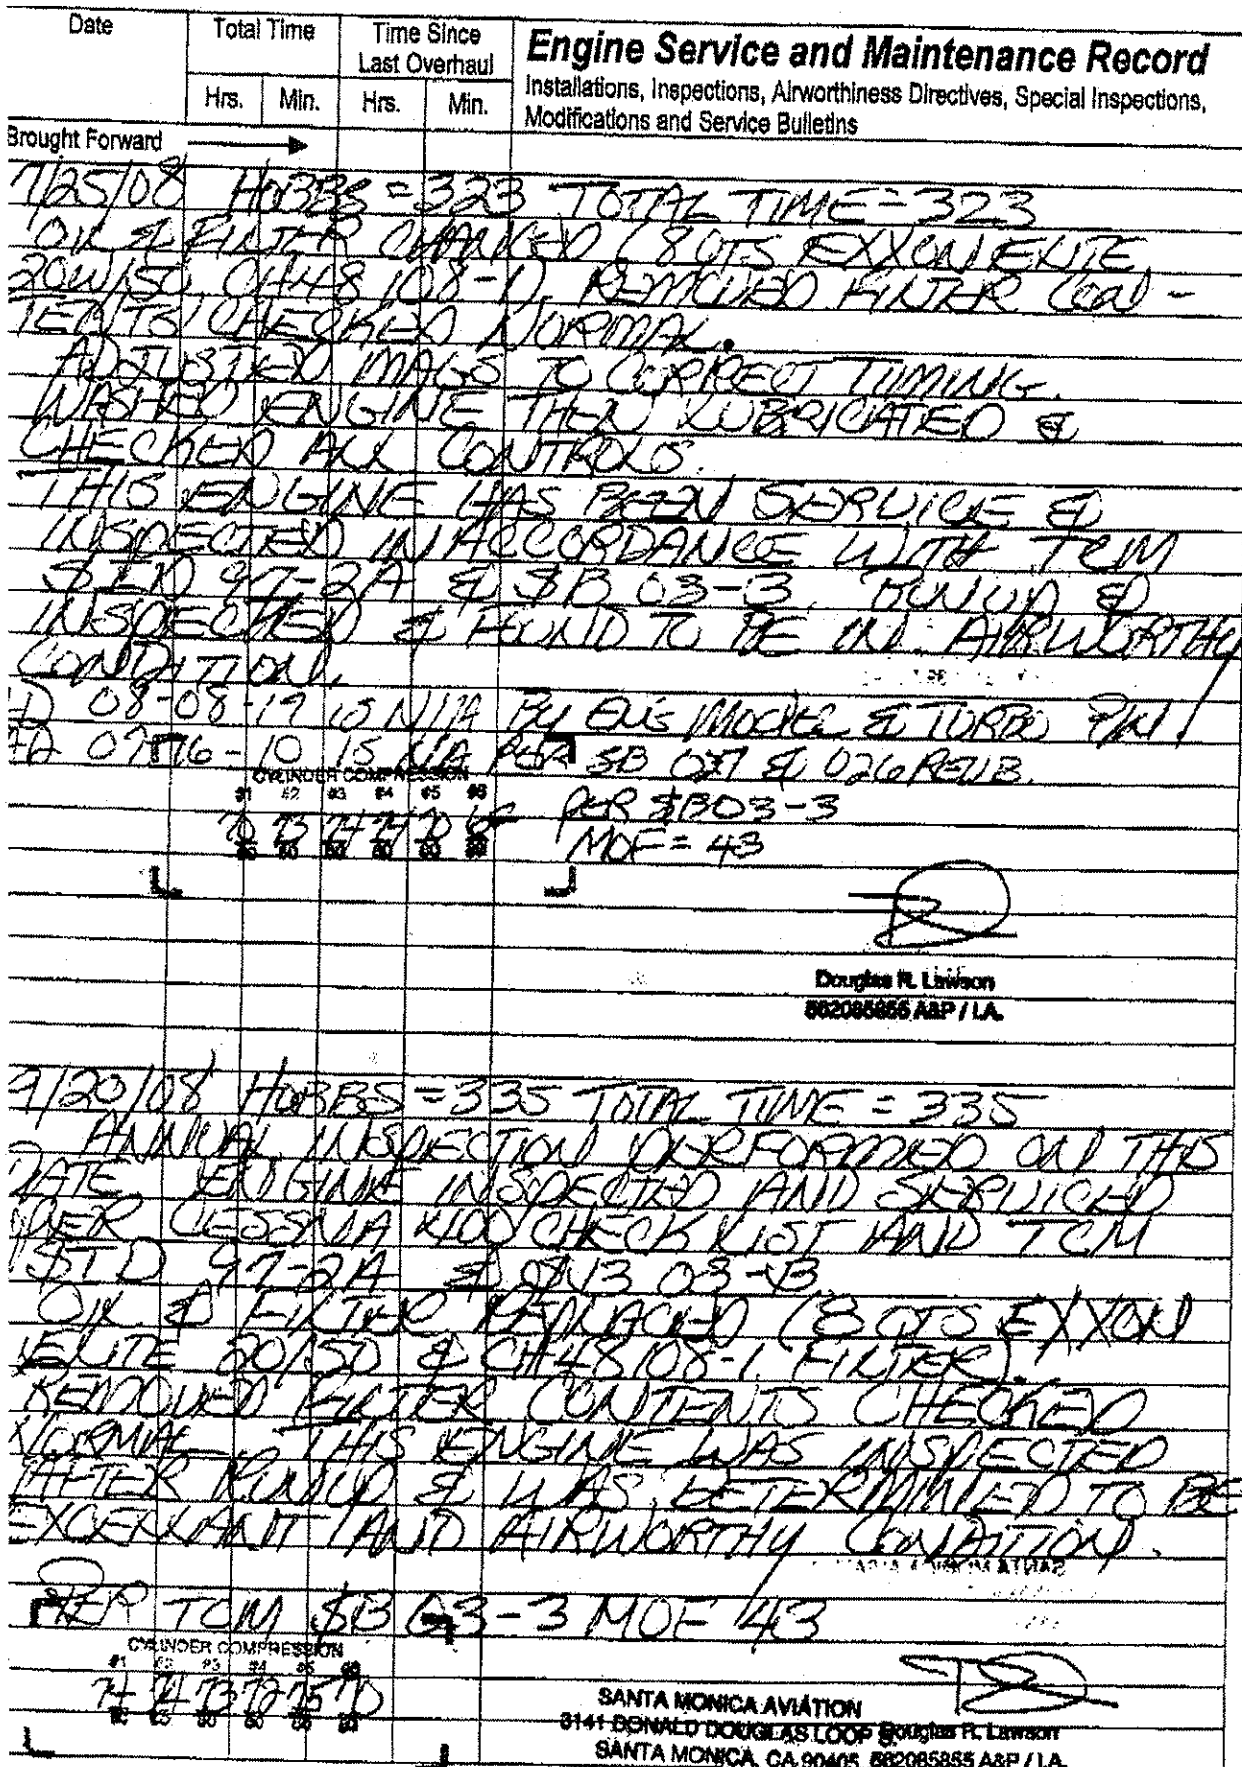 Date Total Time Time Since Last Overhaul Engine Service and Maintenance Record
Hrs. Min. Hrs. Min. Installations, Inspections, Airworthiness Directives, Special Inspections,
Modifications and Service Bulletins
Brought Forward
7/25/08 HOBBS = 323 TOTAL TIME = 323
OIL & FILTER CHANGED (8 QTS EXXON ELITE
20W/50, CH48108-1). REMOVED FILTER CON-
TENTS CHECKED NORMAL.
ADJUSTED MAGS TO CORRECT TIMING.
WASHED ENGINE THEN LUBRICATED &
CHECKED ALL CONTROLS.
THIS ENGINE HAS BEEN SERVICE &
INSPECTED IN ACCORDANCE WITH TCM
SID 97-2A & SB 03-3. RUNUP &
INSPECTED & FOUND TO BE IN AIRWORTHY
CONDITION.
08-08-19 IS N/A BY ENG MODEL & TURBO P/N
07-16-10 IS N/A PER SB 027 & 026 REV B.
CYLINDER COMPRESSION
#1 #2 #3 #4 #5 #6 PER SB03-3
70 73 74 74 70
80 80 80 80 80 80 MOF = 43
Douglas R. Lawson
562085855 A&P / I.A.
9/20/08 HOBBS = 335 TOTAL TIME = 335
ANNUAL INSPECTION PERFORMED ON THIS
DATE ENGINE INSPECTED AND SERVICED
PER CESSNA 400 CHECK LIST AND TCM
SID 97-2A & 03-3
OIL & FILTER REPLACED (8 QTS EXXON
ELITE 20/50 & CH48108-1 FILTER).
REMOVED FILTER CONTENTS CHECKED
NORMAL THIS ENGINE WAS INSPECTED
AFTER RUNUP & WAS DETERMINED TO BE
EXCELLANT AND AIRWORTHY CONDITION.
PER TCM SB 03-3 MOF 43
CYLINDER COMPRESSION
#1 #2 #3 #4 #5 #6
74 74 73 72 75 70
SANTA MONICA AVIATION
3141 DONALD DOUGLAS LOOP S. Douglas R. Lawson
SANTA MONICA, CA 90405 562085855 A&P / I.A.